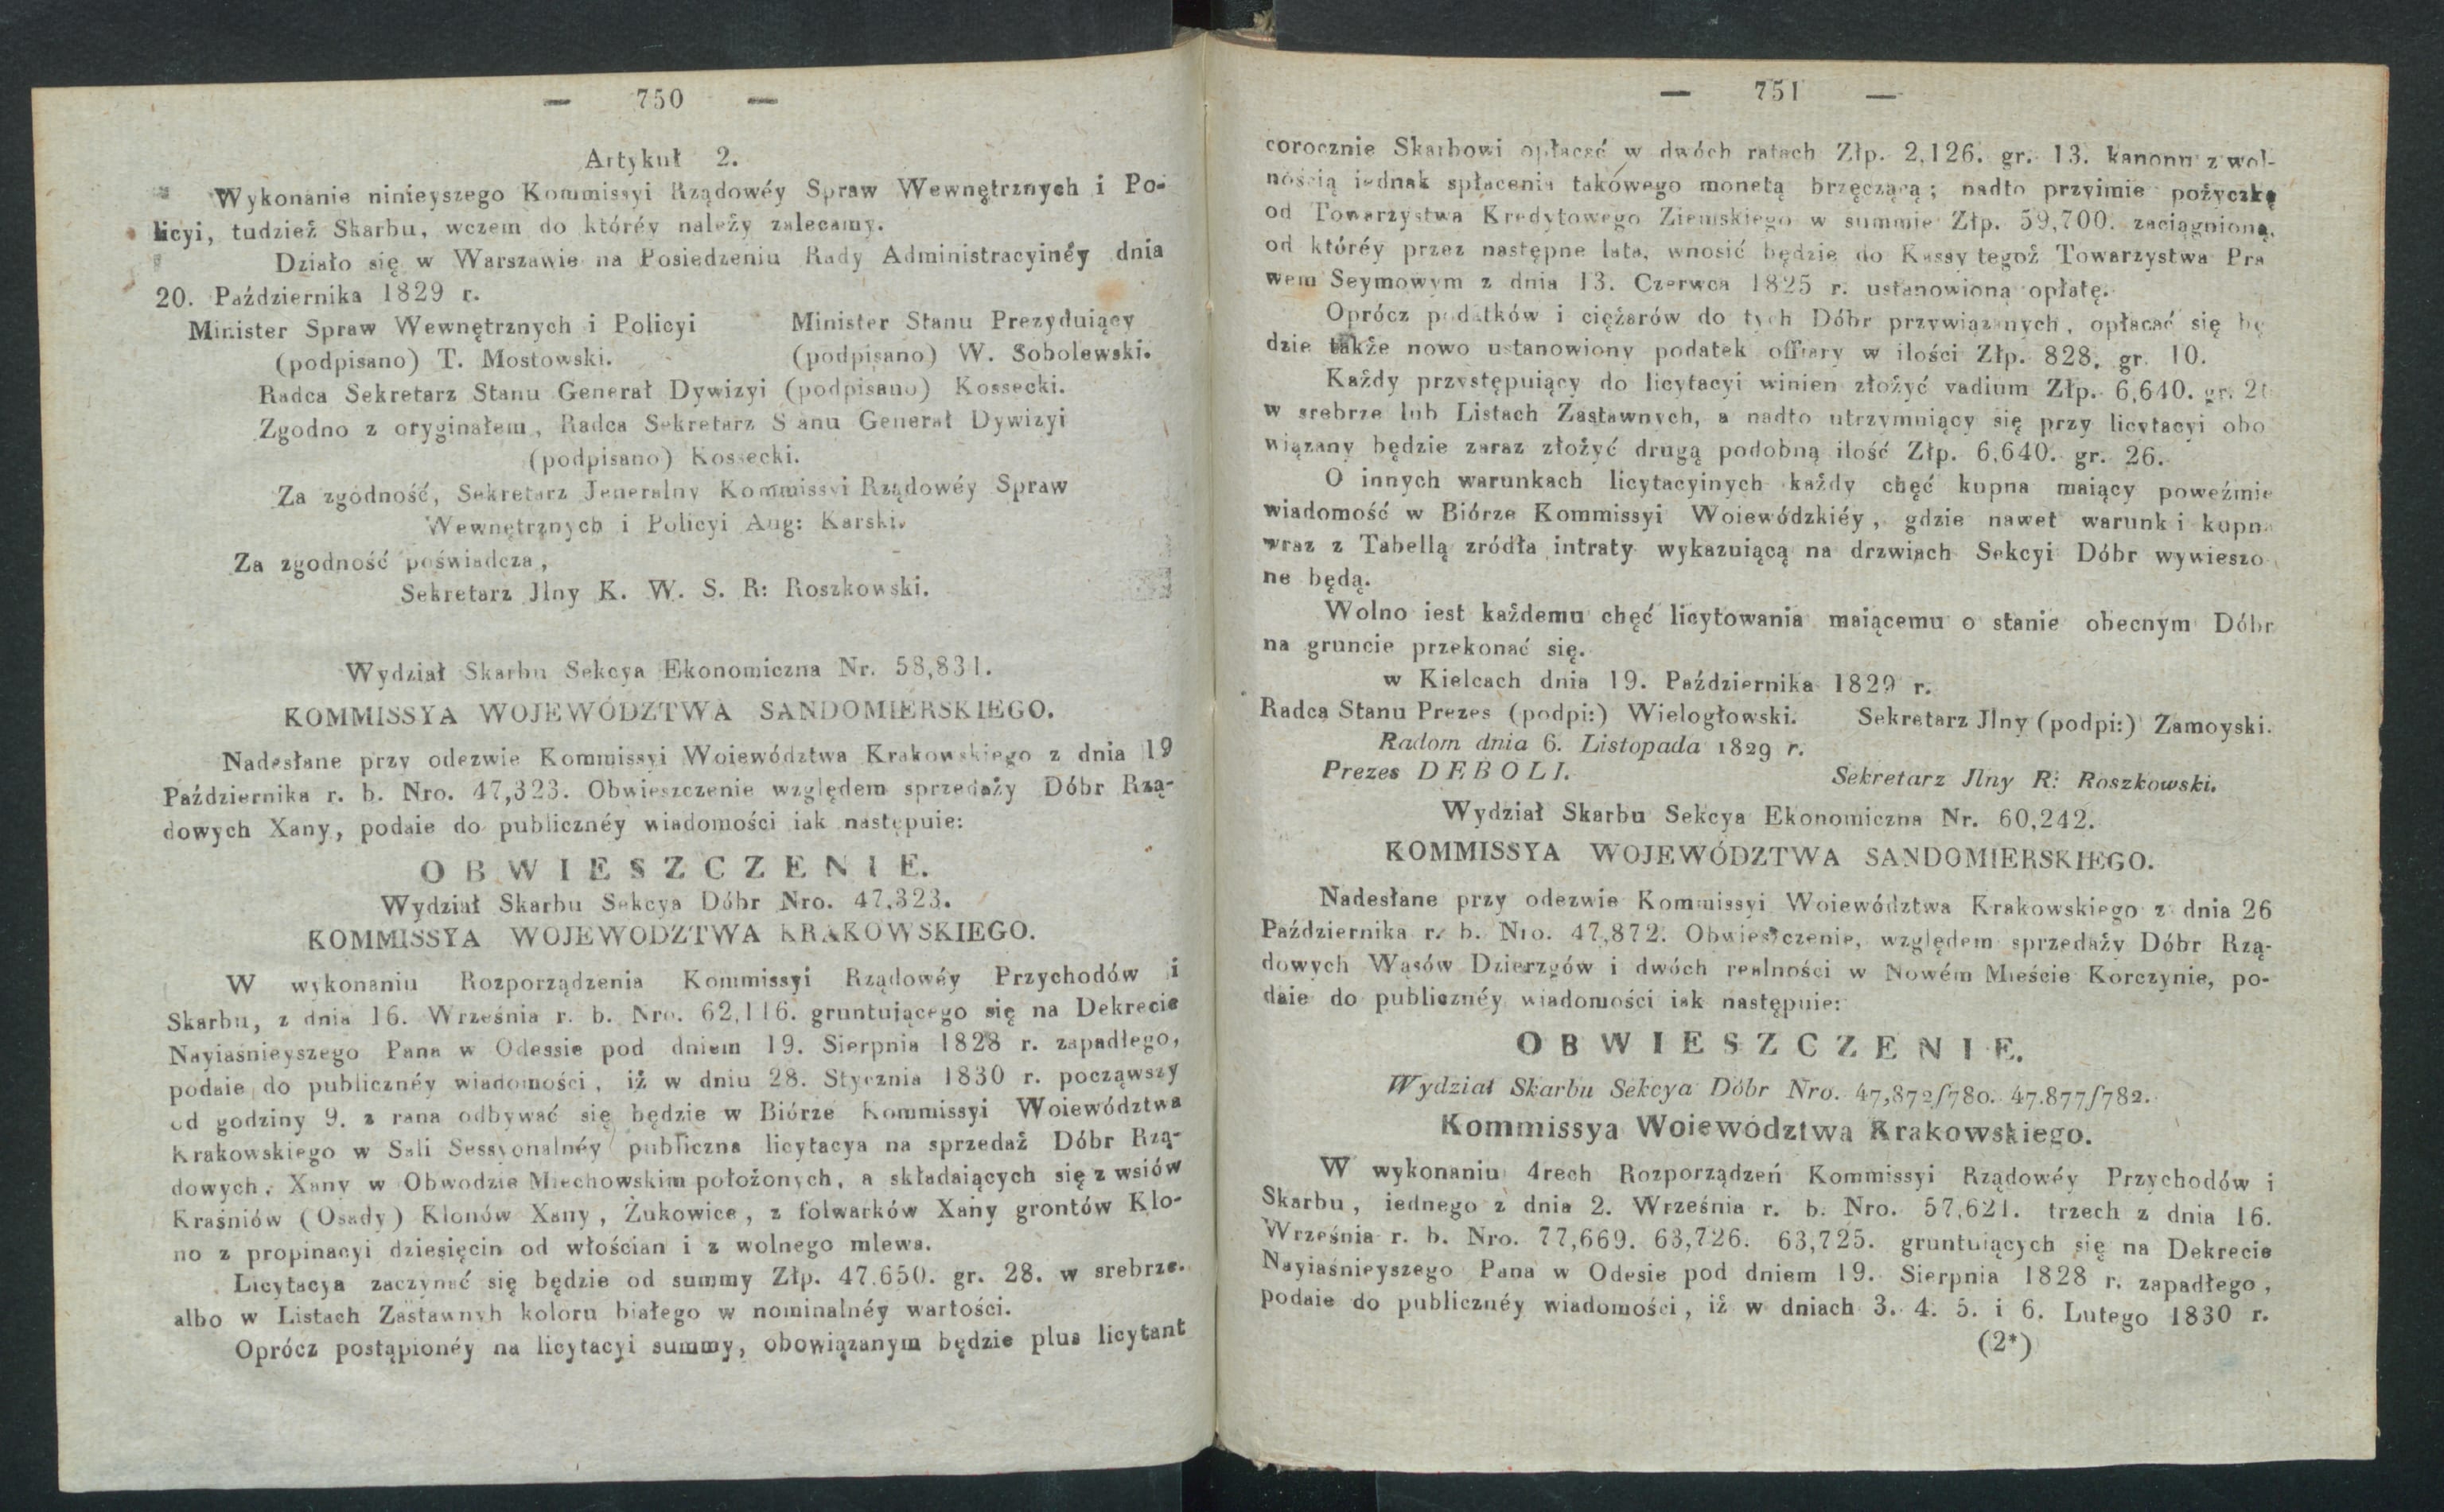 — 750 —
Artykuł 2.
Wykonanie ninieyszego Kommissyi Rządowéy Spraw Wewnętrznych i Po-
licyi, tudzież Skarbu, wczem do któréy należy zalecamy.
Działo się w Warszawie na Posiedzeniu Rady Administracyinéy dnia
20. Października 1829 r.
Minister Spraw Wewnętrznych i Policyi Minister Stanu Prezyduiący
(podpisano) T. Mostowski. (podpisano) W. Sobolewski.
Radca Sekretarz Stanu Generał Dywizyi (podpisano) Kossecki.
Zgodno z oryginałem, Radca Sekretarz S anu Generał Dywizyi
(podpisano) Kossecki.
Za zgodność, Sekretarz Jeneralny Kommissyi Rządowéy Spraw
Wewnętrznych i Policyi Aug: Karski.
Za zgodność poświadcza,
Sekretarz Jlny K. W. S. R: Roszkowski.
Wydział Skarbu Sekcya Ekonomiczna Nr. 58,831.
KOMMISSYA WOJEWÓDZTWA SANDOMIERSKIEGO.
Nadesłane przy odezwie Kommissyi Woiewództwa Krakowskiego z dnia 19
Października r. b. Nro. 47,323. Obwieszczenie względem sprzedaży Dóbr Rzą-
dowych Xany, podaie do publicznéy wiadomości iak następuie:
OBWIESZCZENIE.
Wydział Skarbu Sekcya Dóbr Nro. 47,323.
KOMMISSYA WOJEWODZTWA KRAKOWSKIEGO.
W wykonaniu Rozporządzenia Kommissyi Rządowéy Przychodów i
Skarbu, z dnia 16. Września r. b. Nro. 62,116. gruntującego się na Dekrecie
Nayiaśnieyszego Pana w Odessie pod dniem 19. Sierpnia 1828 r. zapadłego,
podaie do publicznéy wiadomości, iż w dniu 28. Stycznia 1830 r. począwszy
od godziny 9. z rana odbywać się będzie w Biórze Kommissyi Woiewództwa
Krakowskiego w Sali Sessyonalnéy publiczna licytacya na sprzedaż Dóbr Rzą-
dowych, Xany w Obwodzie Miechowskim położonych, a składaiących się z wsiów
Kraśniów (Osady) Klonów Xany, Żukowice, z folwarków Xany grontów Klo-
no z propinacyi dziesięcin od włościan i z wolnego mlewa.
Licytacya zaczynać się będzie od summy Złp. 47,650. gr. 28. w srebrze.
albo w Listach Zastawnyh koloru białego w nominalnéy wartości.
Oprócz postąpionéy na licytacyi summy, obowiązanym będzie plus licytant
— 751 —
corocznie Skarbowi opłacać w dwóch ratach Złp. 2,126. gr. 13. kanonu z wol-
nością iednak spłacenia takowego monetą brzęczącą; nadto przyimie pożyczkę
od Towarzystwa Kredytowego Ziemskiego w summie Złp. 59,700. zaciągnioną,
od któréy przez następne lata, wnosić będzie do Kassy tegoż Towarzystwa Pra
wem Seymowym z dnia 13. Czerwca 1825 r. ustanowioną opłatę.
Oprócz podatków i ciężarów do tych Dóbr przywiązanych, opłacać się bę
dzie także nowo ustanowiony podatek offiary w ilości Złp. 828. gr. 10.
Każdy przystępuiący do licytacyi winien złożyć vadium Złp. 6,640. gr.
w srebrze lub Listach Zastawnych, a nadto utrzymuiący się przy licytacyi obo
wiązany będzie zaraz złożyć drugą podobną ilość Złp. 6,640. gr. 26.
O innych warunkach licytacyinych każdy chęć kupna maiący poweźmie
wiadomość w Biórze Kommissyi Woiewódzkiéy, gdzie nawet warunki kupna
wraz z Tabellą zródła intraty wykazuiącą na drzwiach Sekcyi Dóbr wywieszo
ne będą.
Wolno iest każdemu chęć licytowania maiącemu o stanie obecnym Dóbr
na gruncie przekonać się.
w Kielcach dnia 19. Października 1829 r.
Radca Stanu Prezes (podpi:) Wielogłowski. Sekretarz Jlny (podpi:) Zamoyski.
Radom dnia 6. Listopada 1829 r.
Prezes DEBOLI. Sekretarz Jlny R: Roszkowski.
Wydział Skarbu Sekcya Ekonomiczna Nr. 60,242.
KOMMISSYA WOJEWÓDZTWA SANDOMIERSKIEGO.
Nadesłane przy odezwie Kommissyi Woiewództwa Krakowskiego z dnia 26
Października r. b. Nro. 47,872. Obwieszczenie, względem sprzedaży Dóbr Rzą-
dowych Wąsów Dzierzgów i dwóch realności w Nowém Mieście Korczynie, po-
daie do publicznéy wiadomości iak następuie:
OBWIESZCZENIE.
Wydział Skarbu Sekcya Dóbr Nro. 47,872ſ780. 47.877ſ782.
Kommissya Woiewództwa Krakowskiego.
W wykonaniu 4rech Rozporządzeń Kommissyi Rządowéy Przychodów i
Skarbu, iednego z dnia 2. Września r. b. Nro. 57,621. trzech z dnia 16.
Września r. b. Nro. 77,669. 63,726. 63,725. gruntuiących się na Dekrecie
Nayiaśnieyszego Pana w Odesie pod dniem 19. Sierpnia 1828 r. zapadłego,
podaie do publicznéy wiadomości, iż w dniach 3. 4. 5. i 6. Lutego 1830 r.
(2*)